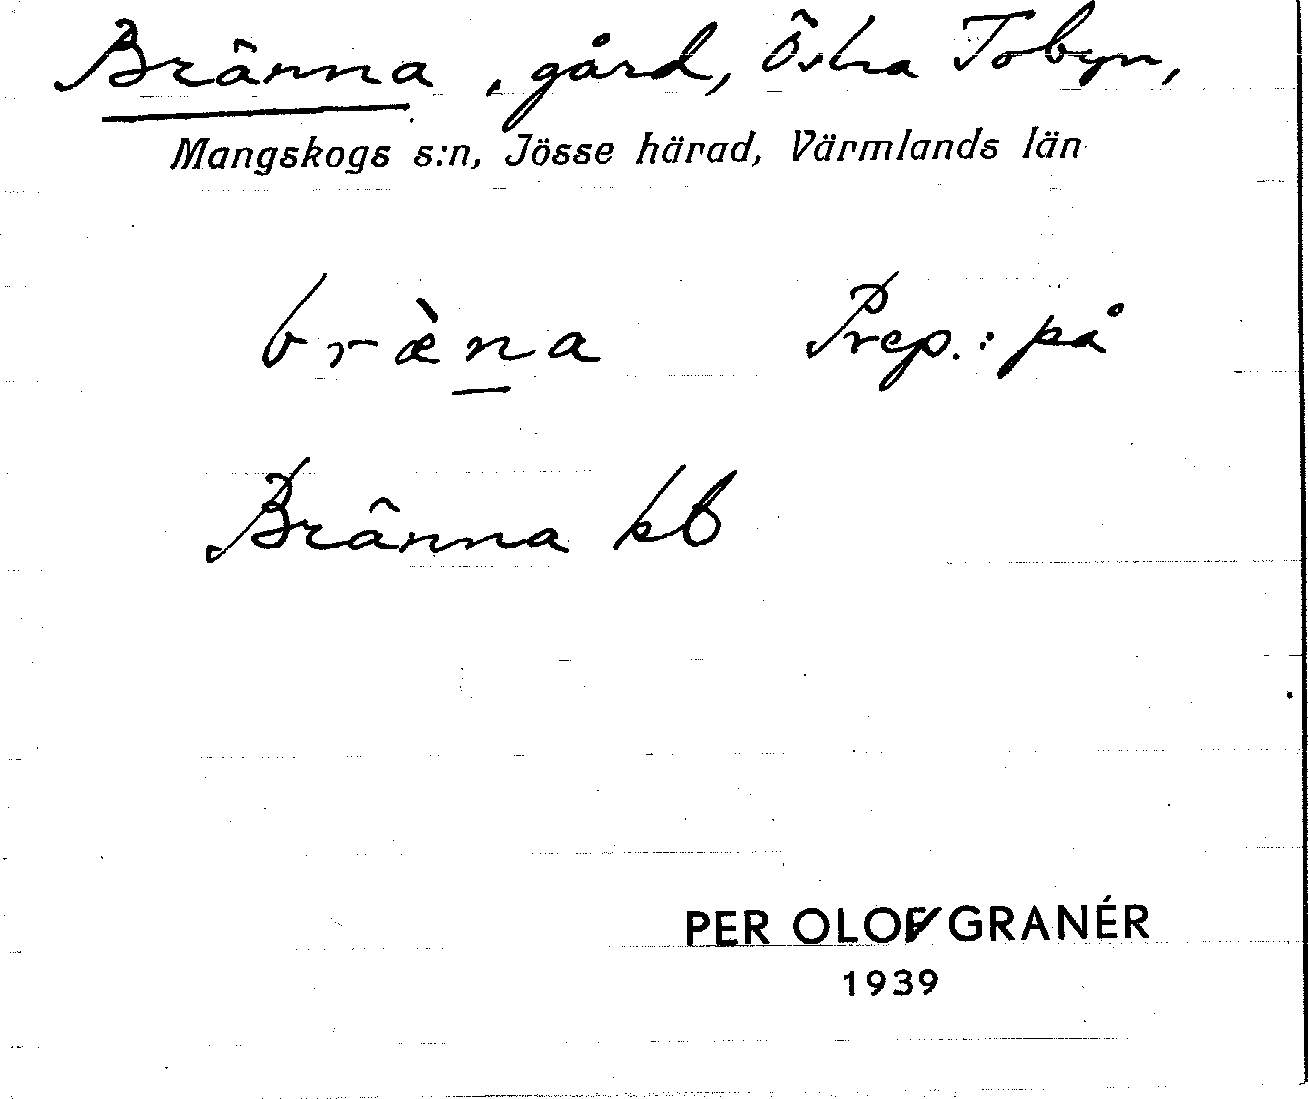 Bränna, gård, Östra Tobyn,
Mangskogs s:n, Jösse härad, Värmlands län
bræ̀n̲a Prep.: på
Bränna kb
PER OLOF GRANÉR
1939